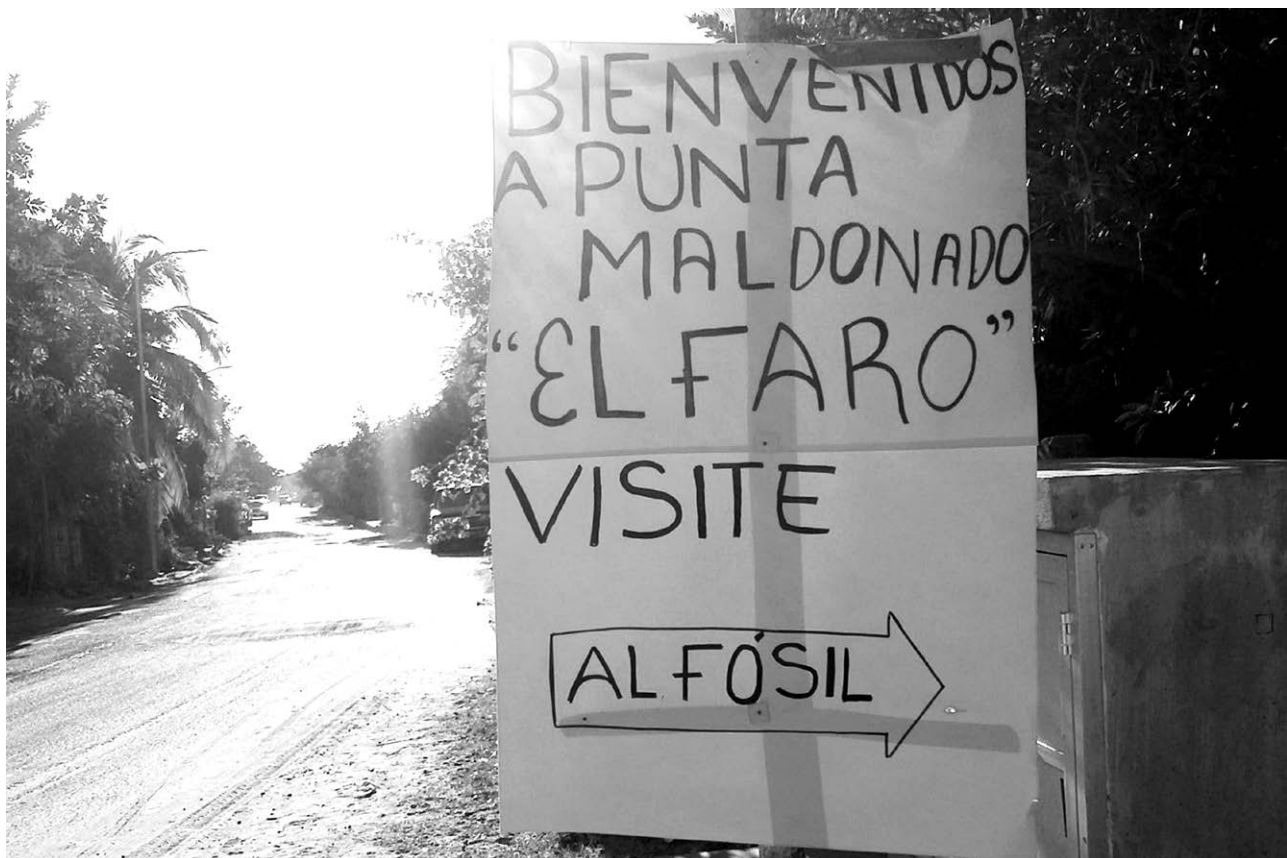 BIENVENIDOS
A PUNTA
MALDONADO
“EL FARO”
VISITE
AL FÓSIL